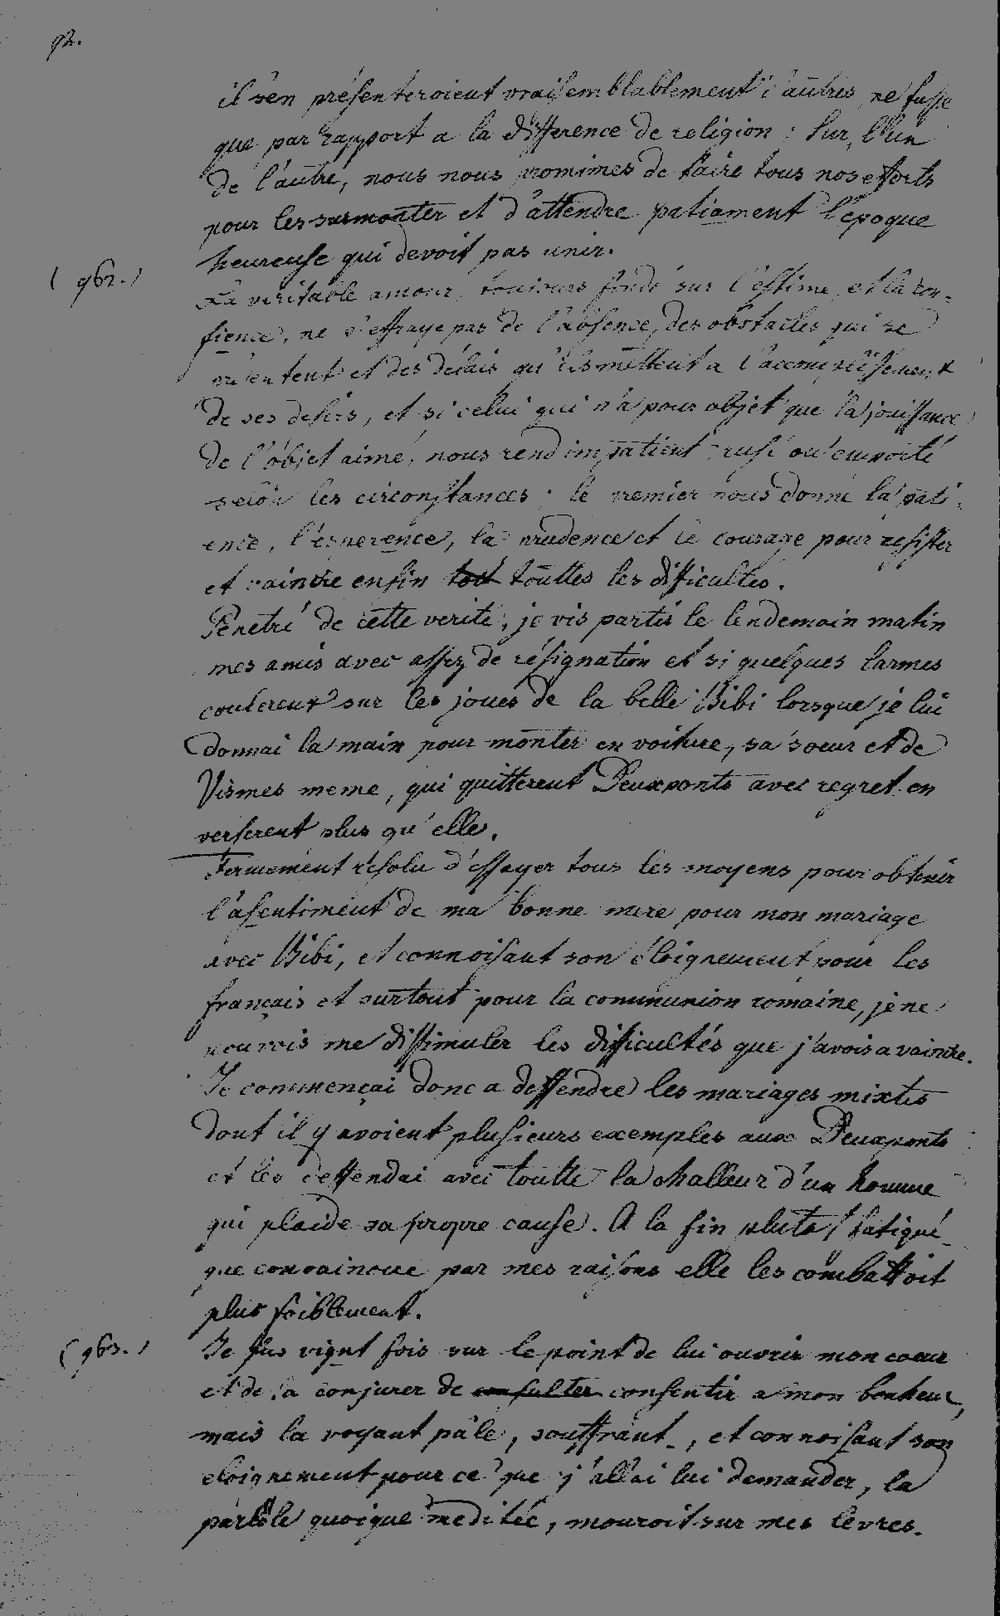 92.
il s'en présenteroient vraisemblablement d'autres ne fusse
que par rapport a la difference de religion : Sur l'un
de l'autre, nous nous promimes de faire tous nos efforts
pour les surmonter et d'attendre patiament l'époque
heureuse qui devoit pas unir.
( 962. )
La veritable amour, toujours fondé sur l'estime, et la con-
fience, ne s'effraye pas de l'absense, des obstacles qui se
présentent et des délais qu'ils mettent a l'accomplissement
de ses desirs, et si celui qui n'a pour objet que la jouissance
de l'objet aimé, nous rend impatient, rusé ou emporté
selon les circonstances ; le premier nous donne la pati-
ence, l'esperence, la prudence et le courage pour resister
et vaincre enfin tout touttes les difficultes.
Pénétré de cette verité, je vis partis le lendemain matin
mes amis avec assez de résignation et si quelques larmes
coulerent sur les joues de la belle Bibi lorsque je lui
donnai la main pour monter en voiture, sa soeur et de
Vismes meme, qui quitterent Deuxponts avec regret en
verserent plus qu'elle.
Fermement résolu d'essayer tous les moyens pour obtenir
l'asentiment de ma bonne mere pour mon mariage
avec Bibi, et connoisant son éloignement pour les
français et surtout pour la communion romaine, je ne
pouvois me dissimuler les difficultés que j'avois a vaincre.
Je commençai donc a deffendre les mariages mixtes
dont il y avoient plusieurs exemples aux Deuxponts
et les deffendai avec toutte la challeur d'un homme
qui plaide sa propre cause. A la fin plutot fatigué
que convaincue par mes raisons elle les combattoit
plus foiblement.
( 963. )
Je fus vignt fois sur le point de lui ouvrir mon coeur
et de la conjurer de consulter consentir a mon bonheur,
mais la voyant pâle, souffrant, et connoisant son
eloignement pour ce que j'allai lui demander, la
parole quoique meditée, mouroit sur mes levres.